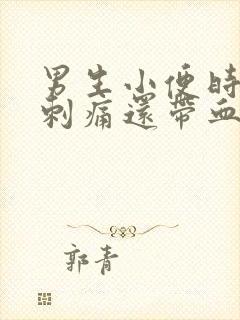 男生小便時
刺痛還帶血
郭青